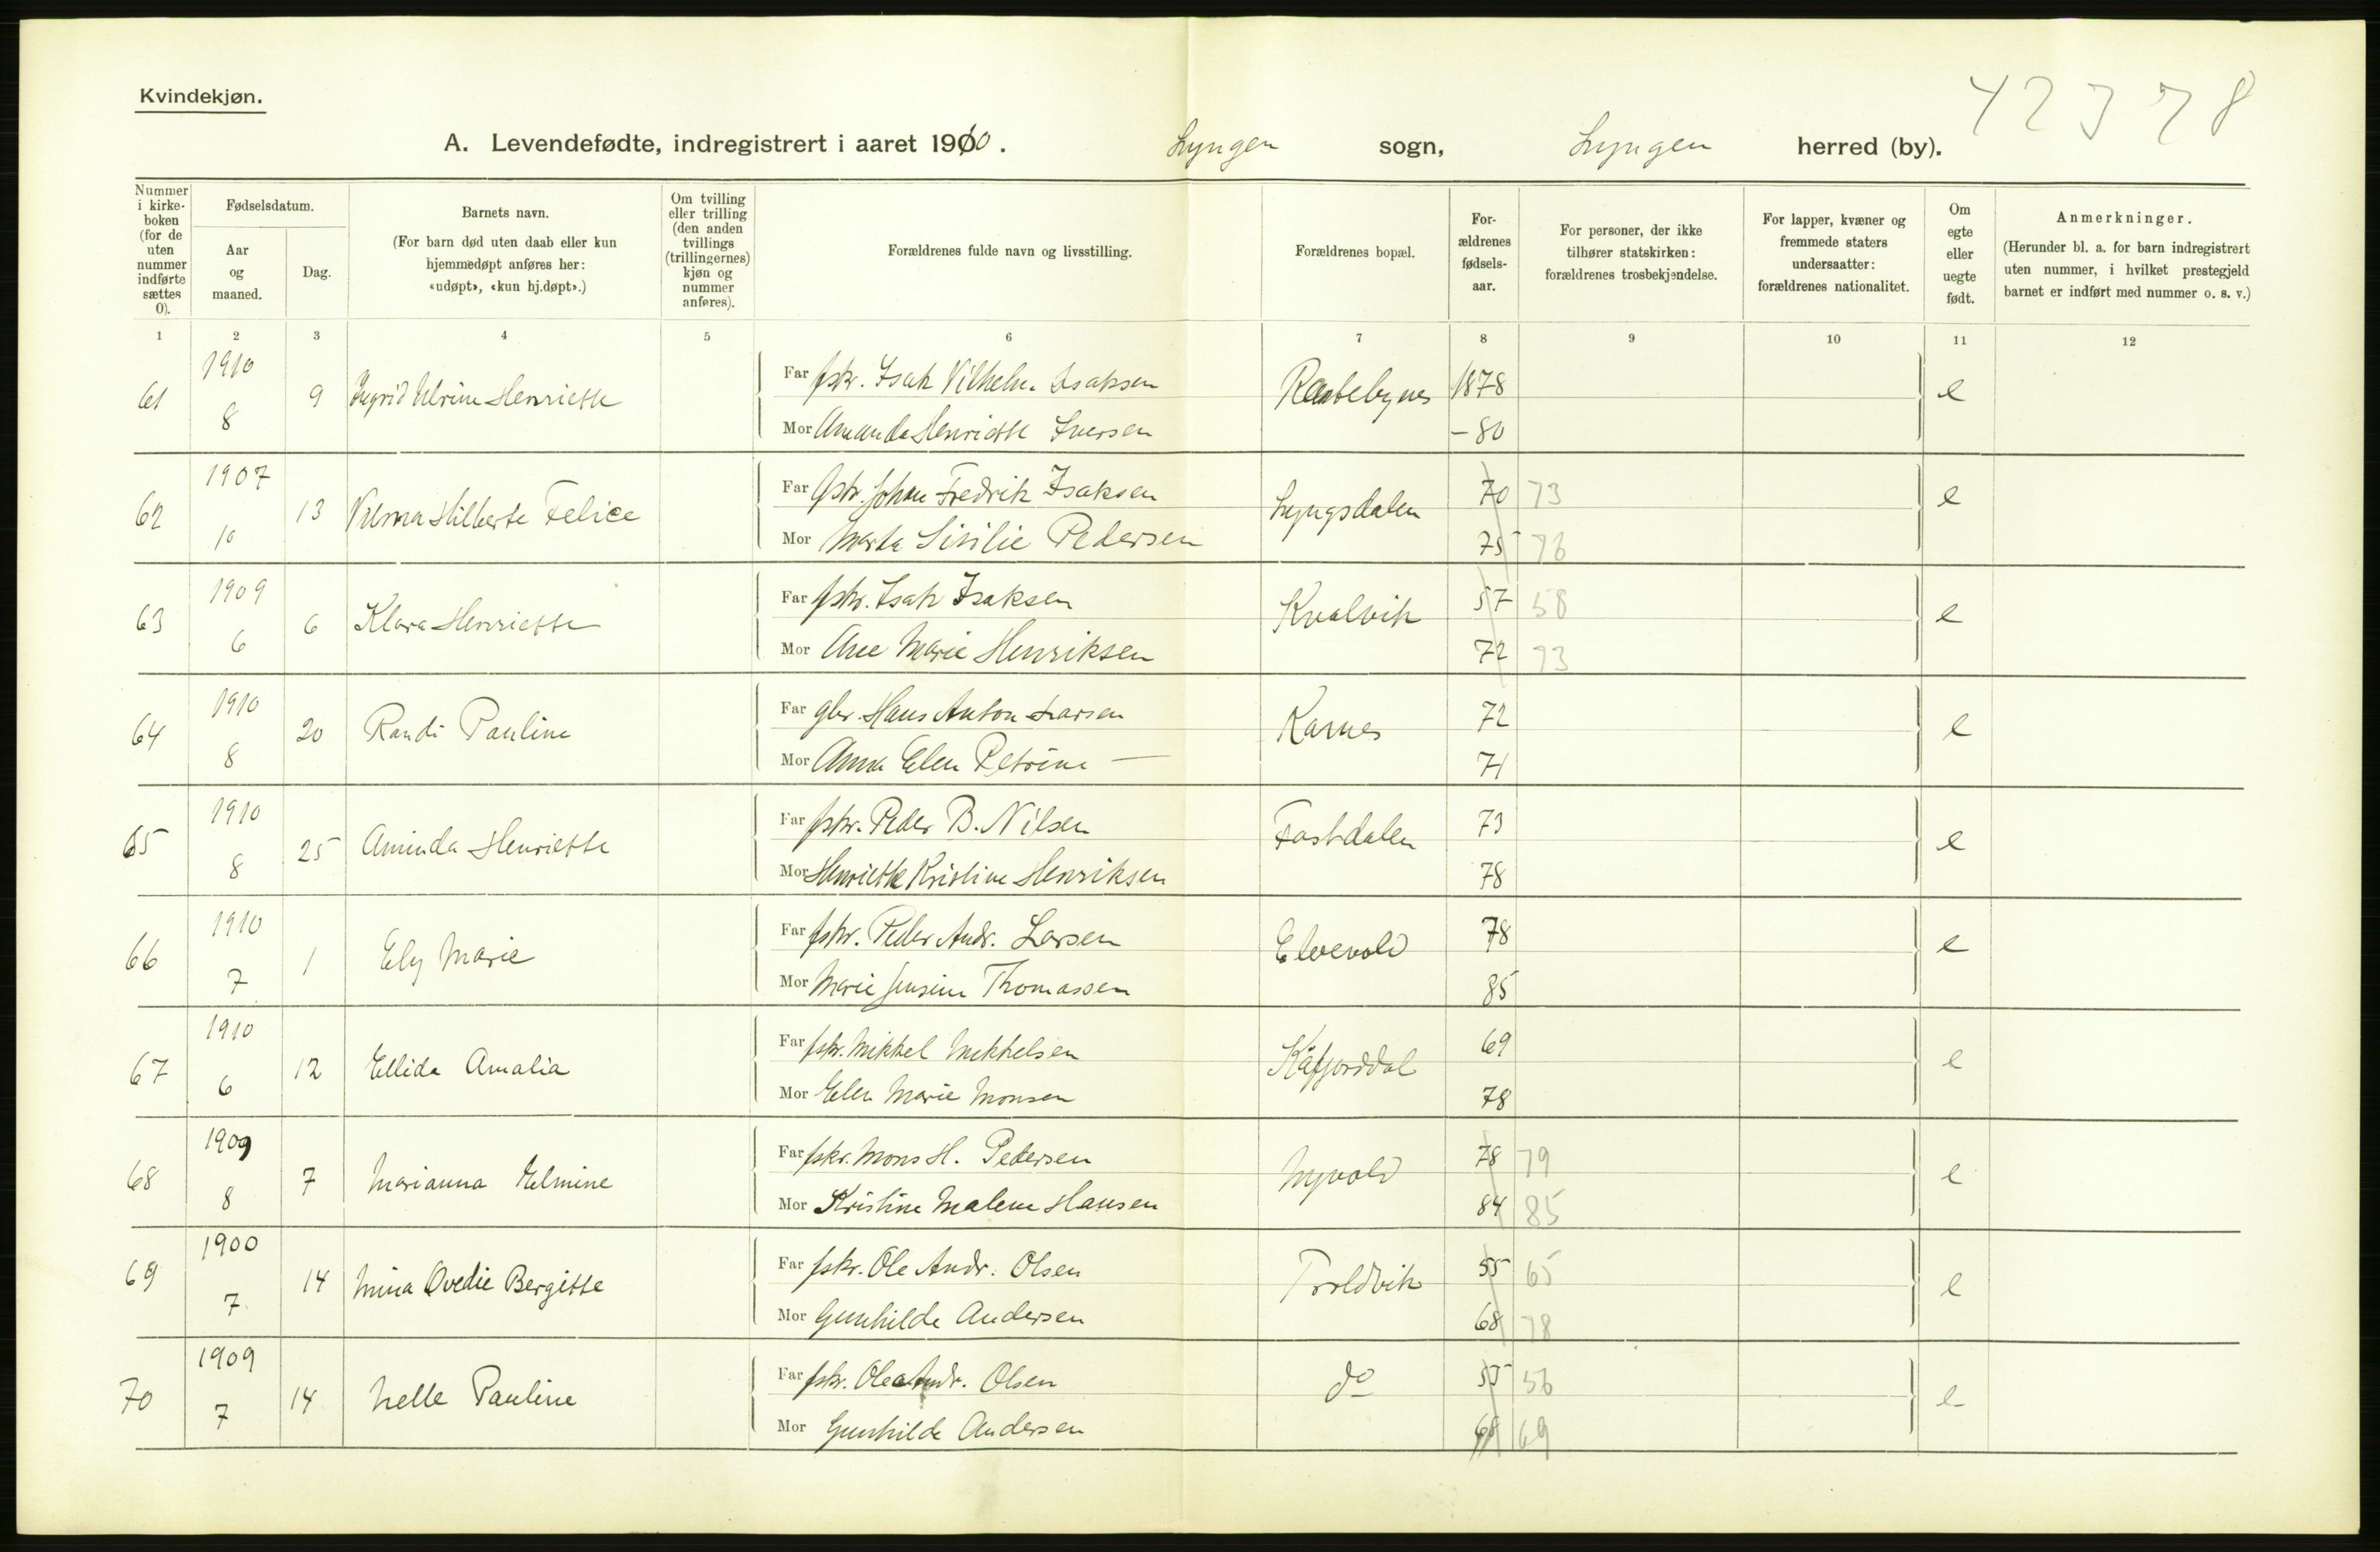 Kvindekjøn.
42378
A. Levendefødte, indregistrert i aaret 1910. Lyngen sogn, Lyngen herred (by).
Nummer i kirkeboken (for de uten nummer indførte sættes 0).
Fødselsdatum.
Aar og maaned.
Dag.
Barnets navn.
(For barn død uten daab eller kun hjemmedøpt anføres her: «udøpt», «kun hj.døpt».)
Om tvilling eller trilling (den anden tvillings (trillingernes) kjøn og nummer anføres).
Forældrenes fulde navn og livsstilling.
Forældrenes bopæl.
For-ældrenes fødsels-aar.
For personer, der ikke tilhører statskirken: forældrenes trosbekjendelse.
For lapper, kvæner og fremmede staters undersaatter: forældrenes nationalitet.
Om egte eller uegte født.
Anmerkninger.
(Herunder bl. a. for barn indregistrert uten nummer, i hvilket prestegjeld barnet er indført med nummer o. s. v.)
1 2 3 4 5 6 7 8 9 10 11 12
61 1910 8 9 Ingrid Ulrine Henriette Far fskr. Isak Vilhelm Isaksen 1878 e
Mor Amanda Henriette Iversen - 80
62 1907 10 13 Vilma Hilberte Felice Far fskr. Johan Fredrik Isaksen Lyngsdalen 70 73 e
Mor Marta Sisilie Pedersen 75 76
63 1909 6 6 Klara Henriette Far fskr. Isak Isaksen Kvalvik 57 58 e
Mor Ane Marie Henriksen 72 73
64 1910 8 20 Randi Pauline Far gbr. Hans Anton Larsen Karnes 72 e
Mor Anna Elen Petrine — 71
65 1910 8 25 Aminda Henriette Far fskr. Peder B. Nilsen Fastdalen 73 e
Mor Henriette Kristine Henriksen 78
66 1910 7 1 Ely Marie Far fskr. Peder Andr. Larsen Elvevold 78 e
Mor Marie Jensine Thomassen 85
67 1910 6 12 Ellida Amalia Far fskr. Mikkel Mikkelsen Kåfjorddal 69 e
Mor Elen Marie Monsen 78
68 1909 8 7 Marianna Elmine Far fskr. Mons H. Pedersen Nyvold 78 79 e
Mor Kristine Malene Hansen 84 85
69 1900 7 14 Mina Ovedie Bergitte Far fskr. Ole Andr. Olsen Troldvik 55 65 e
Mor Gunhilde Andersen 68 78
70 1909 7 14 Nelle Pauline Far fskr. Ole Andr. Olsen do 55 56 e
Mor Gunhilde Andersen 68 69